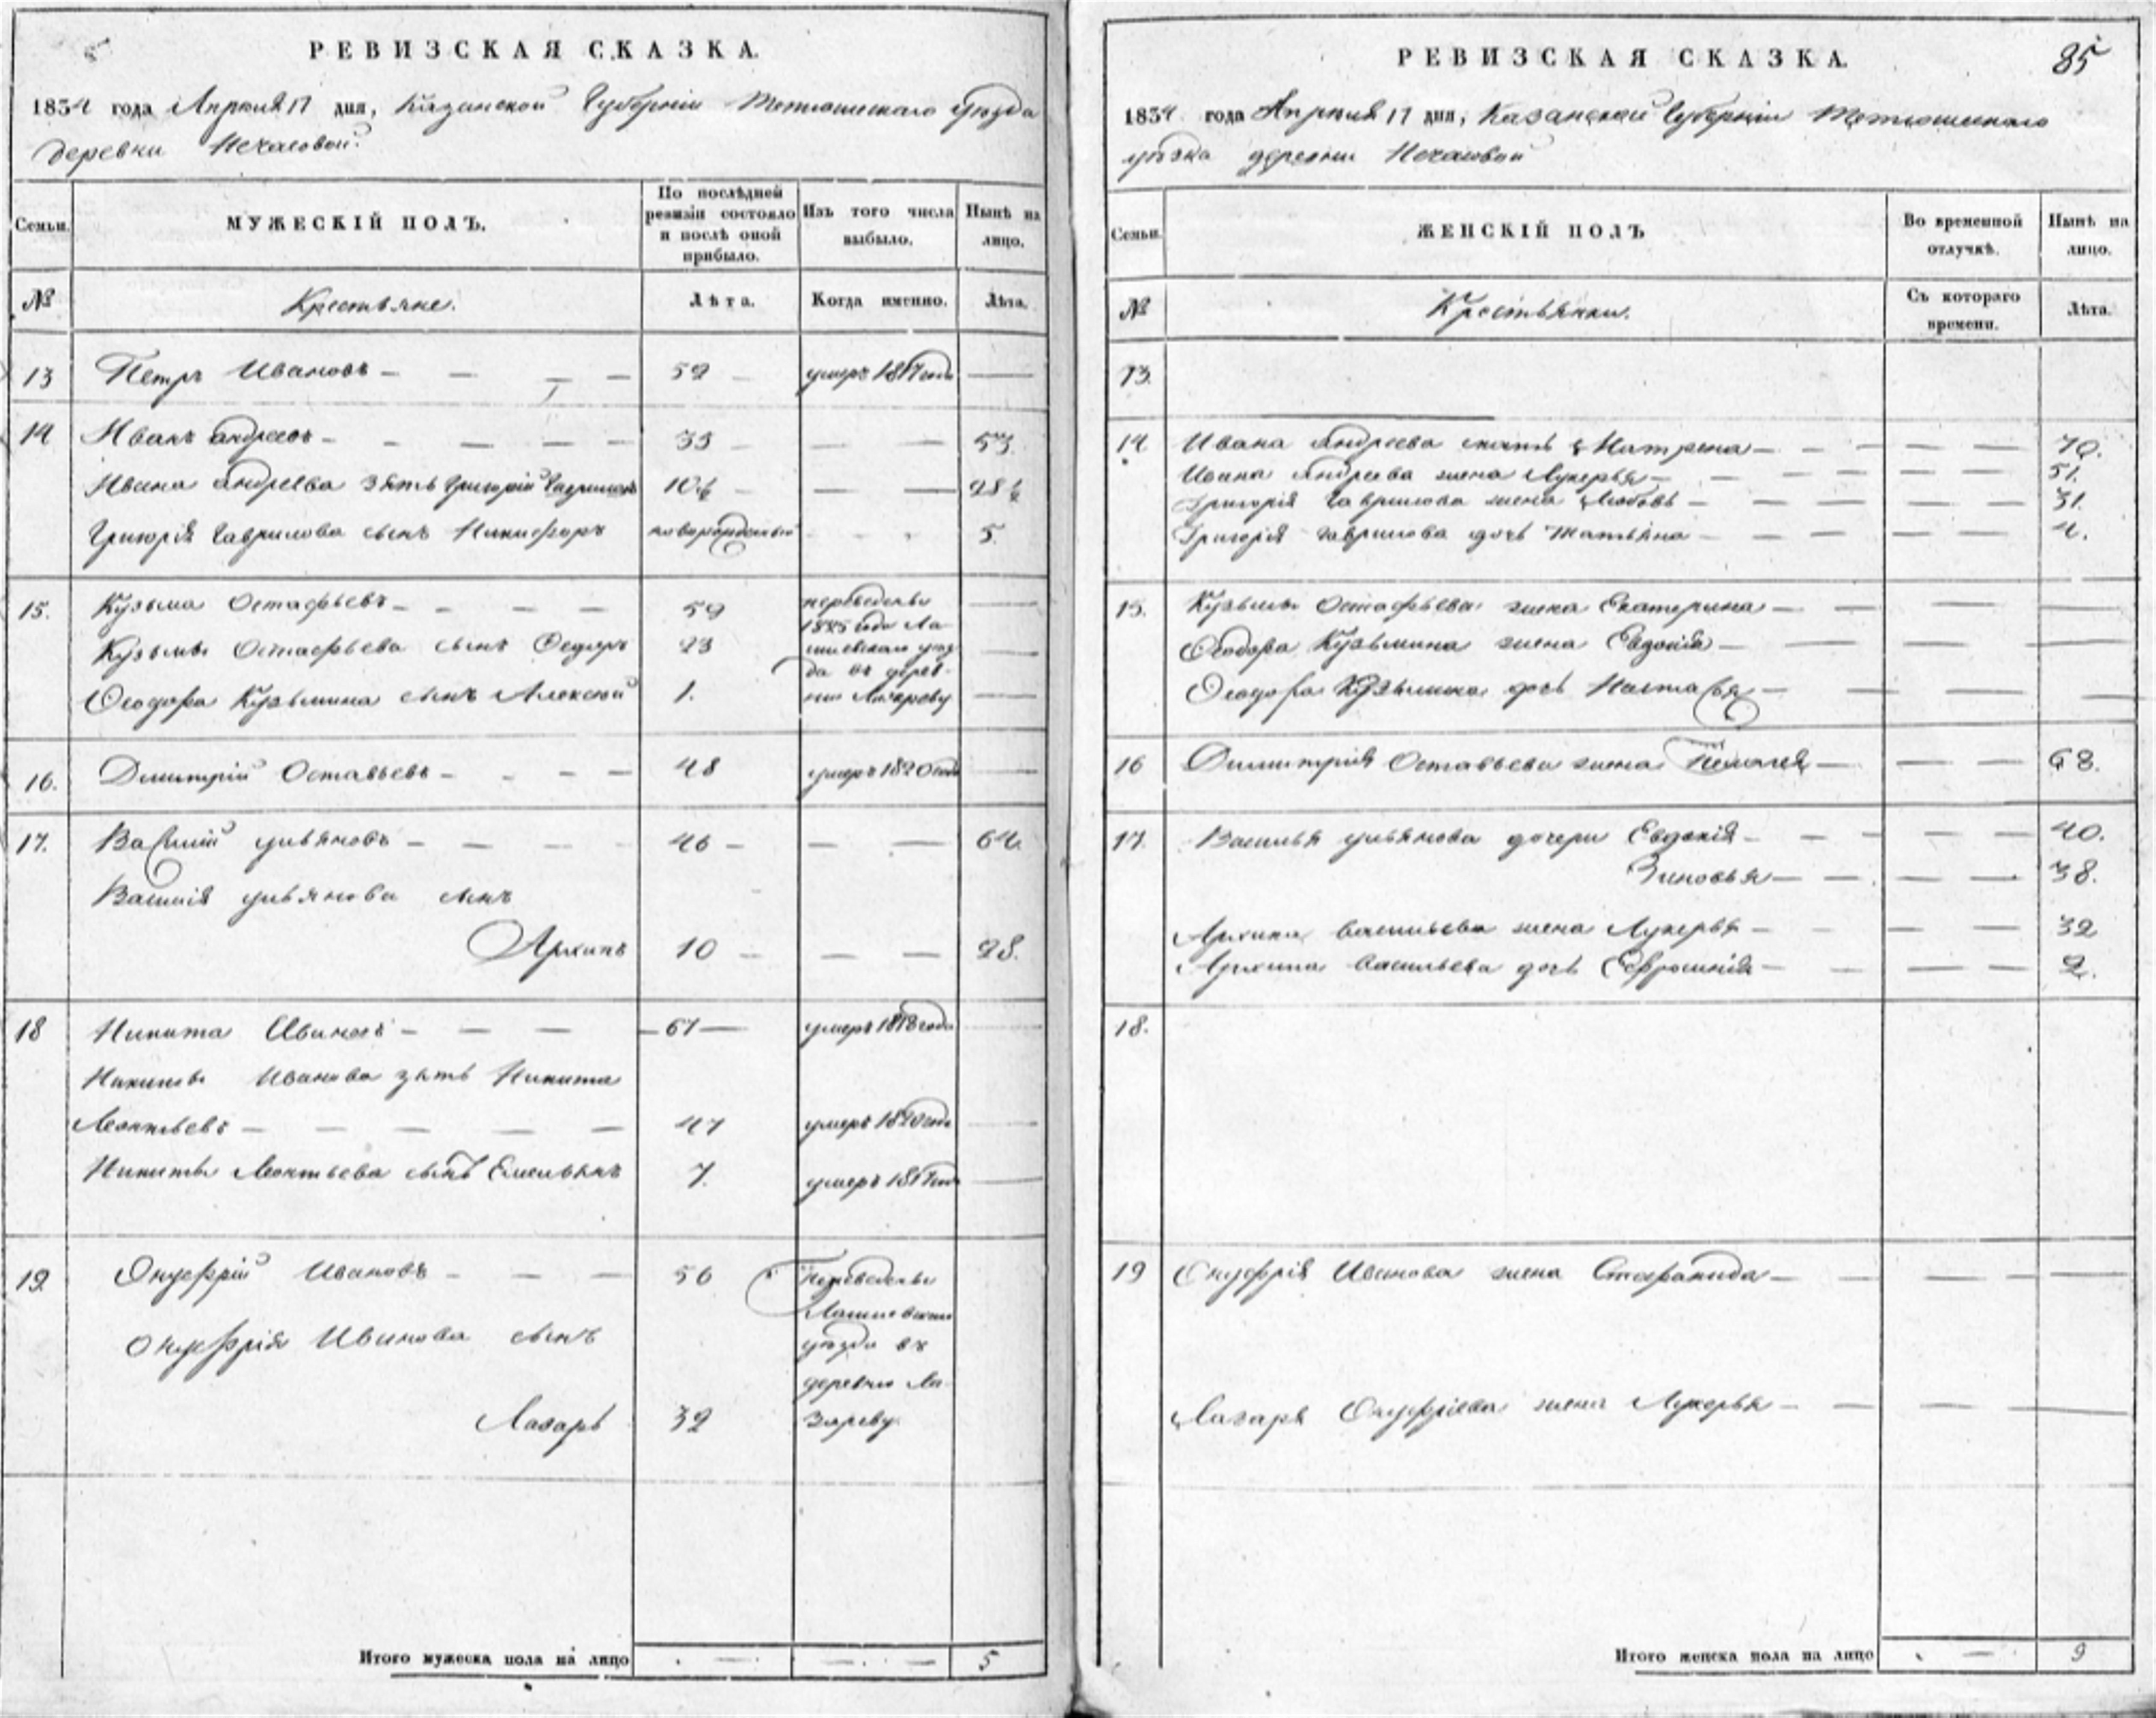 РЕВИЗСКАЯ СКАЗКА.
1834 года Апреля 17 дня, Казанской Губерніи Тетюшскаго уѣзда
деревни Нечасовой.
Семьи.
МУЖЕСКІЙ ПОЛЪ.
По послѣдней ревизіи состояло и послѣ оной прибыло.
Изъ того числа выбыло.
Нынѣ на лицо.
№
Крестьяне.
Лѣта.
Когда именно.
Лѣта.
13 Петръ Ивановъ — — — — 59 — умеръ 1817 года ——
14 Иванъ Андреевъ — — — — — 33 — — — 53.
Ивана Андреева зять Григорій Гавриловъ 10½ — — — 28½
Григорія Гаврилова сынъ Никифоръ новорожденный 5.
15. Кузьма Остафьевъ — — — — 59 переведены ——
1825 года Ла-
Кузьмы Остафьева сынъ Федоръ 23 ишевскаго уѣз- ——
да въ дерев-
Феодора Кузьмина сынъ Алексей 1. ню Лазареву ——
16. Дмитрій Остафьевъ — — — — 48 умеръ 1820 года ——
17. Василій Ульяновъ — — — — 46 — — — 64.
Василія Ульянова сынъ
Архипъ 10 — — — 28.
18 Никита Ивановъ — — — — 61 — умеръ 1818 года
Никиты Иванова зять Никита
Леонтьевъ — — — — — 47 умеръ 1820 года
Никиты Леонтьева сынъ Емельянъ 7. умеръ 1817 года ——
19. Онуфрій Ивановъ — — — 56 Переведены
Лаишевскаго
Онуфрія Иванова сынъ уѣзда въ
деревню Ла-
Лазарь 32 зареву.
Итого мужеска пола на лицо . — — 5
РЕВИЗСКАЯ СКАЗКА.
85
1834 года Апреля 17 дня, Казанской Губерніи Тетюшскаго
уѣзда деревни Нечасовой
Семьи.
ЖЕНСКІЙ ПОЛЪ
Во временной отлучкѣ.
Нынѣ на лицо.
№
Крестьянки.
Съ котораго времени.
Лѣта.
13.
14 Ивана Андреева мать Матрена — — — — — 70.
Ивана Андреева жена Лукерья — — — — — 51.
Григорія Гаврилова жена Любовь — — — — — 31.
Григорія Гаврилова дочь Татьяна — — — — — 4.
15. Кузьмы Остафьева жена Екатерина — — — — ——
Феодора Кузьмина жена Евдокія — — — ——
Феодора Кузьмина дочь Настасья — — — ——
16 Димитрія Остафьева жена Пелагея — — — 68.
17. Василья Ульянова дочери Евдокія — — — — — 40.
Зиновья — — — — 38.
Архипа Васильева жена Лукерья — — — — 32
Архипа Васильева дочь Ефросинія — — — — 2.
18.
19 Онуфрія Иванова жена Стефанида — — — — ——
Лазаря Онуфріева жена Лукерья — — — — ——
Итого женска пола на лицо . — 9